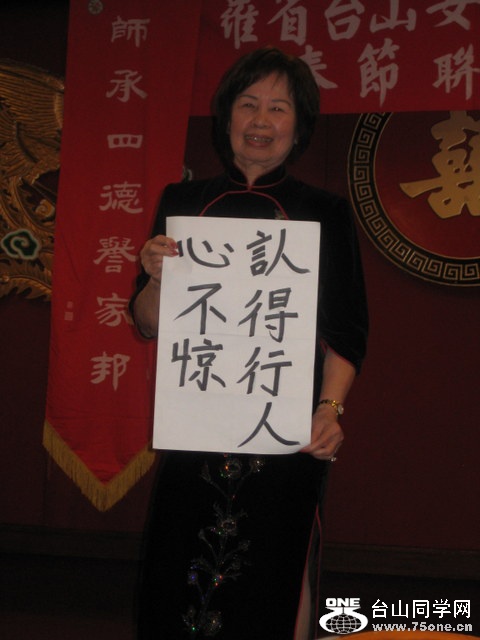 雍省台山女
春節聯
師承四德譽家邦
认得行人
心不惊
囍
ONE
台山同学网
www.75one.cn